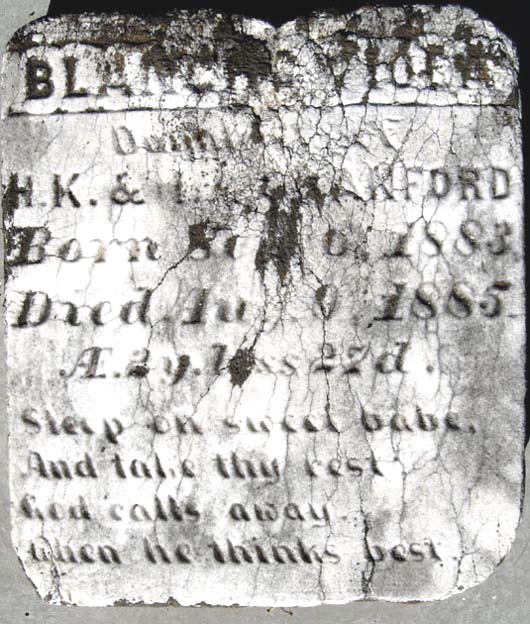 BLANCHE
H.K. &
Born 1883.
Died 1885.
Æ. 2 y. less 27 d.
Sleep on sweet babe,
And take thy rest
God calls away
When he thinks best.